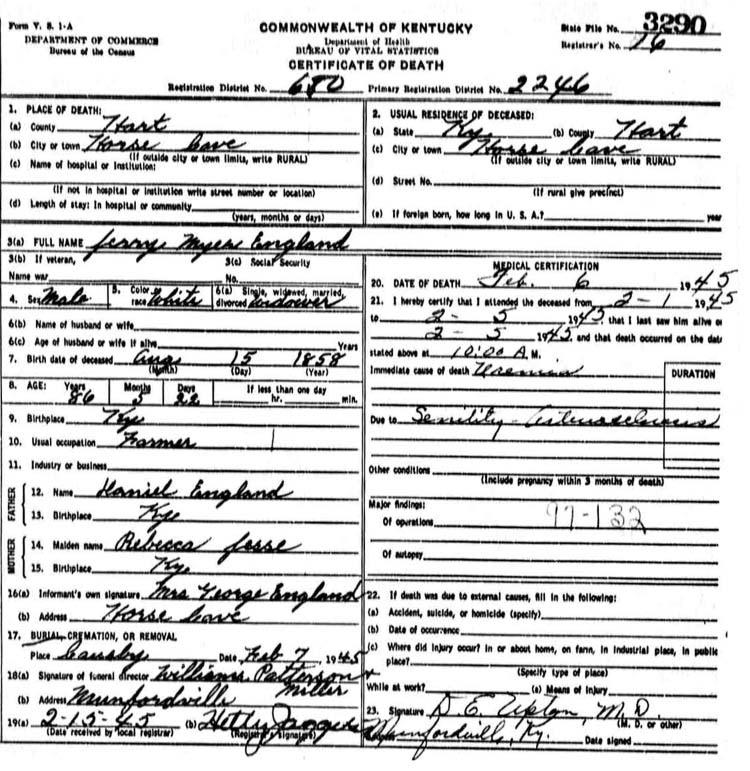 Form V. S. 1-A
DEPARTMENT OF COMMERCE
Bureau of the Census
COMMONWEALTH OF KENTUCKY
Department of Health
BUREAU OF VITAL STATISTICS
CERTIFICATE OF DEATH
State File No. 3290
Registrar's No. 16
Registration District No. 680 Primary Registration District No. 2246
1. PLACE OF DEATH:
(a) County Hart
(b) City or town Horse Cave
(If outside city or town limits, write RURAL)
(c) Name of hospital or Institution:
(If not in hospital or institution write street number or location)
(d) Length of stay: In hospital or community
(years, months or days)
2. USUAL RESIDENCE OF DECEASED:
(a) State Ky (b) County Hart
(c) City or town Horse Cave
(If outside city or town limits, write RURAL)
(d) Street No.
(If rural give precinct)
(e) If foreign born, how long in U. S. A.? year
3(a) FULL NAME Jerry Myers England
3(b) If veteran, 3(c) Social Security
Name war No.
4. Sex Male 5. Color race White 6(a) Single, widowed, married, divorced widower
6(b) Name of husband or wife
6(c) Age of husband or wife if alive Years
7. Birth date of deceased Aug 15 1858
(Month) (Day) (Year)
8. AGE: Years Months Days If less than one day
86 5 22 hr. min.
9. Birthplace Ky
10. Usual occupation Farmer
11. Industry or business
FATHER
12. Name Daniel England
13. Birthplace Ky
MOTHER
14. Maiden name Rebecca Jesse
15. Birthplace Ky
16(a) Informant's own signature Mrs George England
(b) Address Horse Cave
17. BURIAL, CREMATION, OR REMOVAL
Place Date Feb 7 1945
18(a) Signature of funeral director Williams Patterson
Miller
(b) Address Munfordville
19(a) 2-15-45 (b) Hetty
(Date received by local registrar) (Registrar's signature)
MEDICAL CERTIFICATION
20. DATE OF DEATH Feb. 6 1945
21. I hereby certify that I attended the deceased from 2-1 1945
to 2-5 1945 that I last saw him alive on
2-5 1945 and that death occurred on the date
stated above at 10:00 A.M.
Immediate cause of death Uraemia DURATION
Due to Senility
Other conditions
(Include pregnancy within 3 months of death)
Major findings:
Of operations 97-132
Of autopsy
22. If death was due to external causes, fill in the following:
(a) Accident, suicide, or homicide (specify)
(b) Date of occurrence
(c) Where did injury occur? In or about home, on farm, in industrial place, in public
place?
(Specify type of place)
While at work? (e) Means of injury
23. Signature D. E. Upton, M.D.
(M. D. or other)
Munfordville, Ky. Date signed